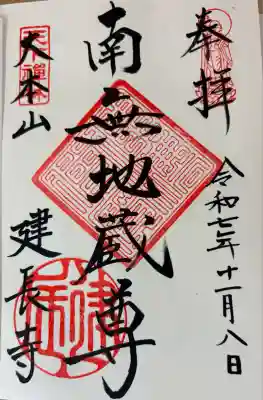 奉拝
令和七年十一月八日
南無地蔵尊
天下禅林
大本山
建長寺